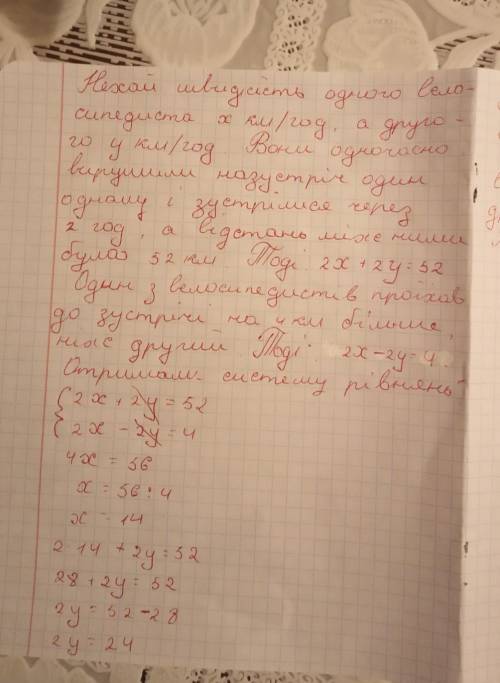 Нехай швидкість одного вело-
сипедиста x км/год, а друго-
го y км/год. Вони одночасно
вирушили назустріч один
одному і зустрілися через
2 год, а відстань між ними
була 52 км. Тоді: 2x + 2y = 52
Один з велосипедистів проїхав
до зустрічі на 4 км більше,
ніж другий. Тоді: 2x - 2y = 4.
Отримали систему рівнянь
{ 2x + 2y = 52
{ 2x - 2y = 4
4x = 56
x = 56 : 4
x = 14
2 · 14 + 2y = 52
28 + 2y = 52
2y = 52 - 28
2y = 24